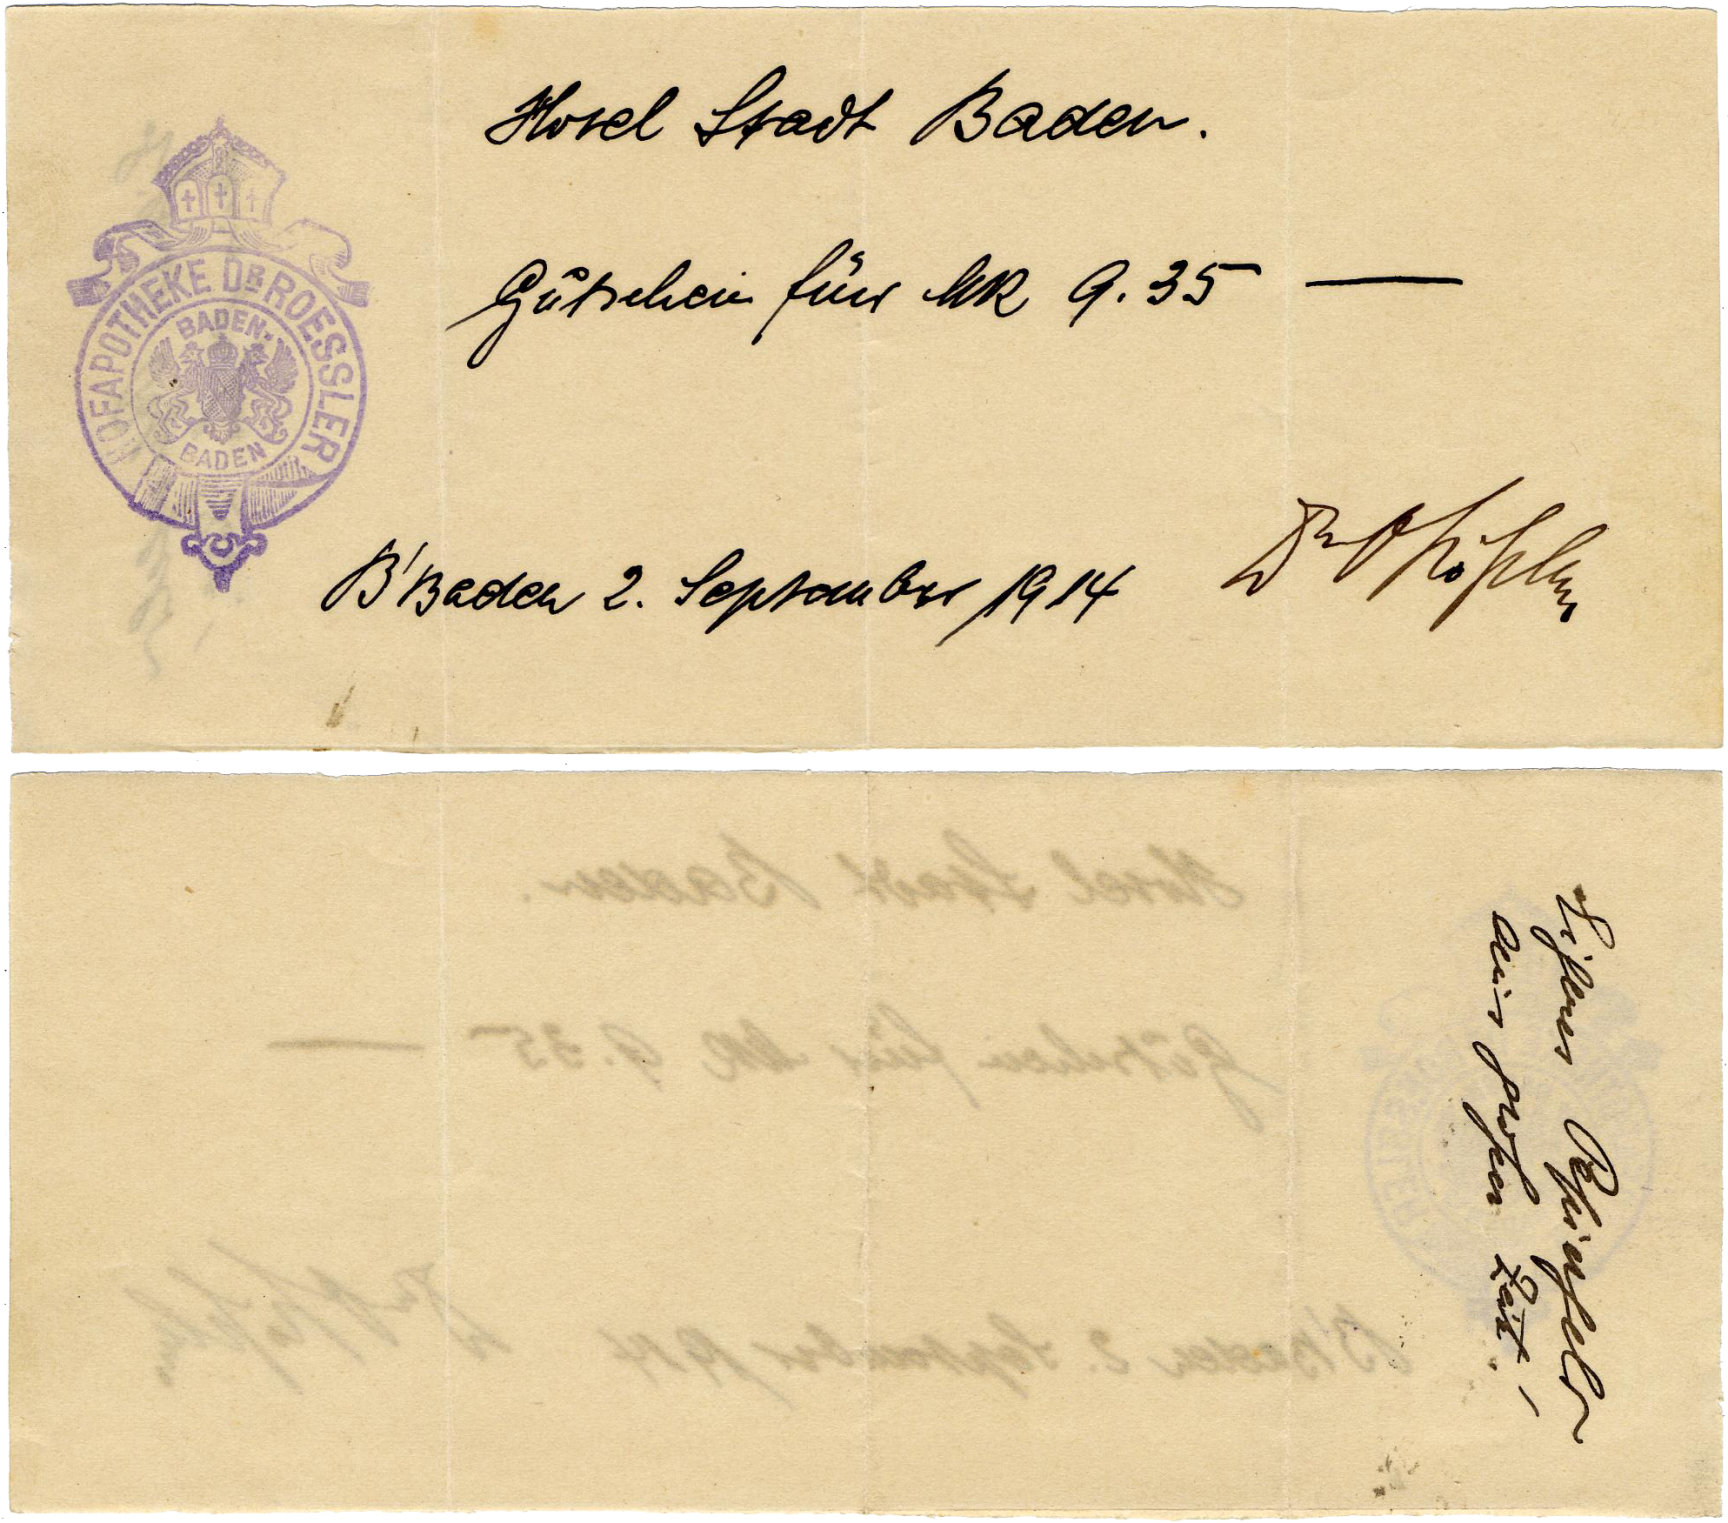 Hotel Stadt Baden.
HOFAPOTHEKE DR ROESSLER
BADEN-
BADEN
Gutschein für Mk 9.35 —
B'Baden 2. September 1914
Dr O Rößler
aus großer Zeit!